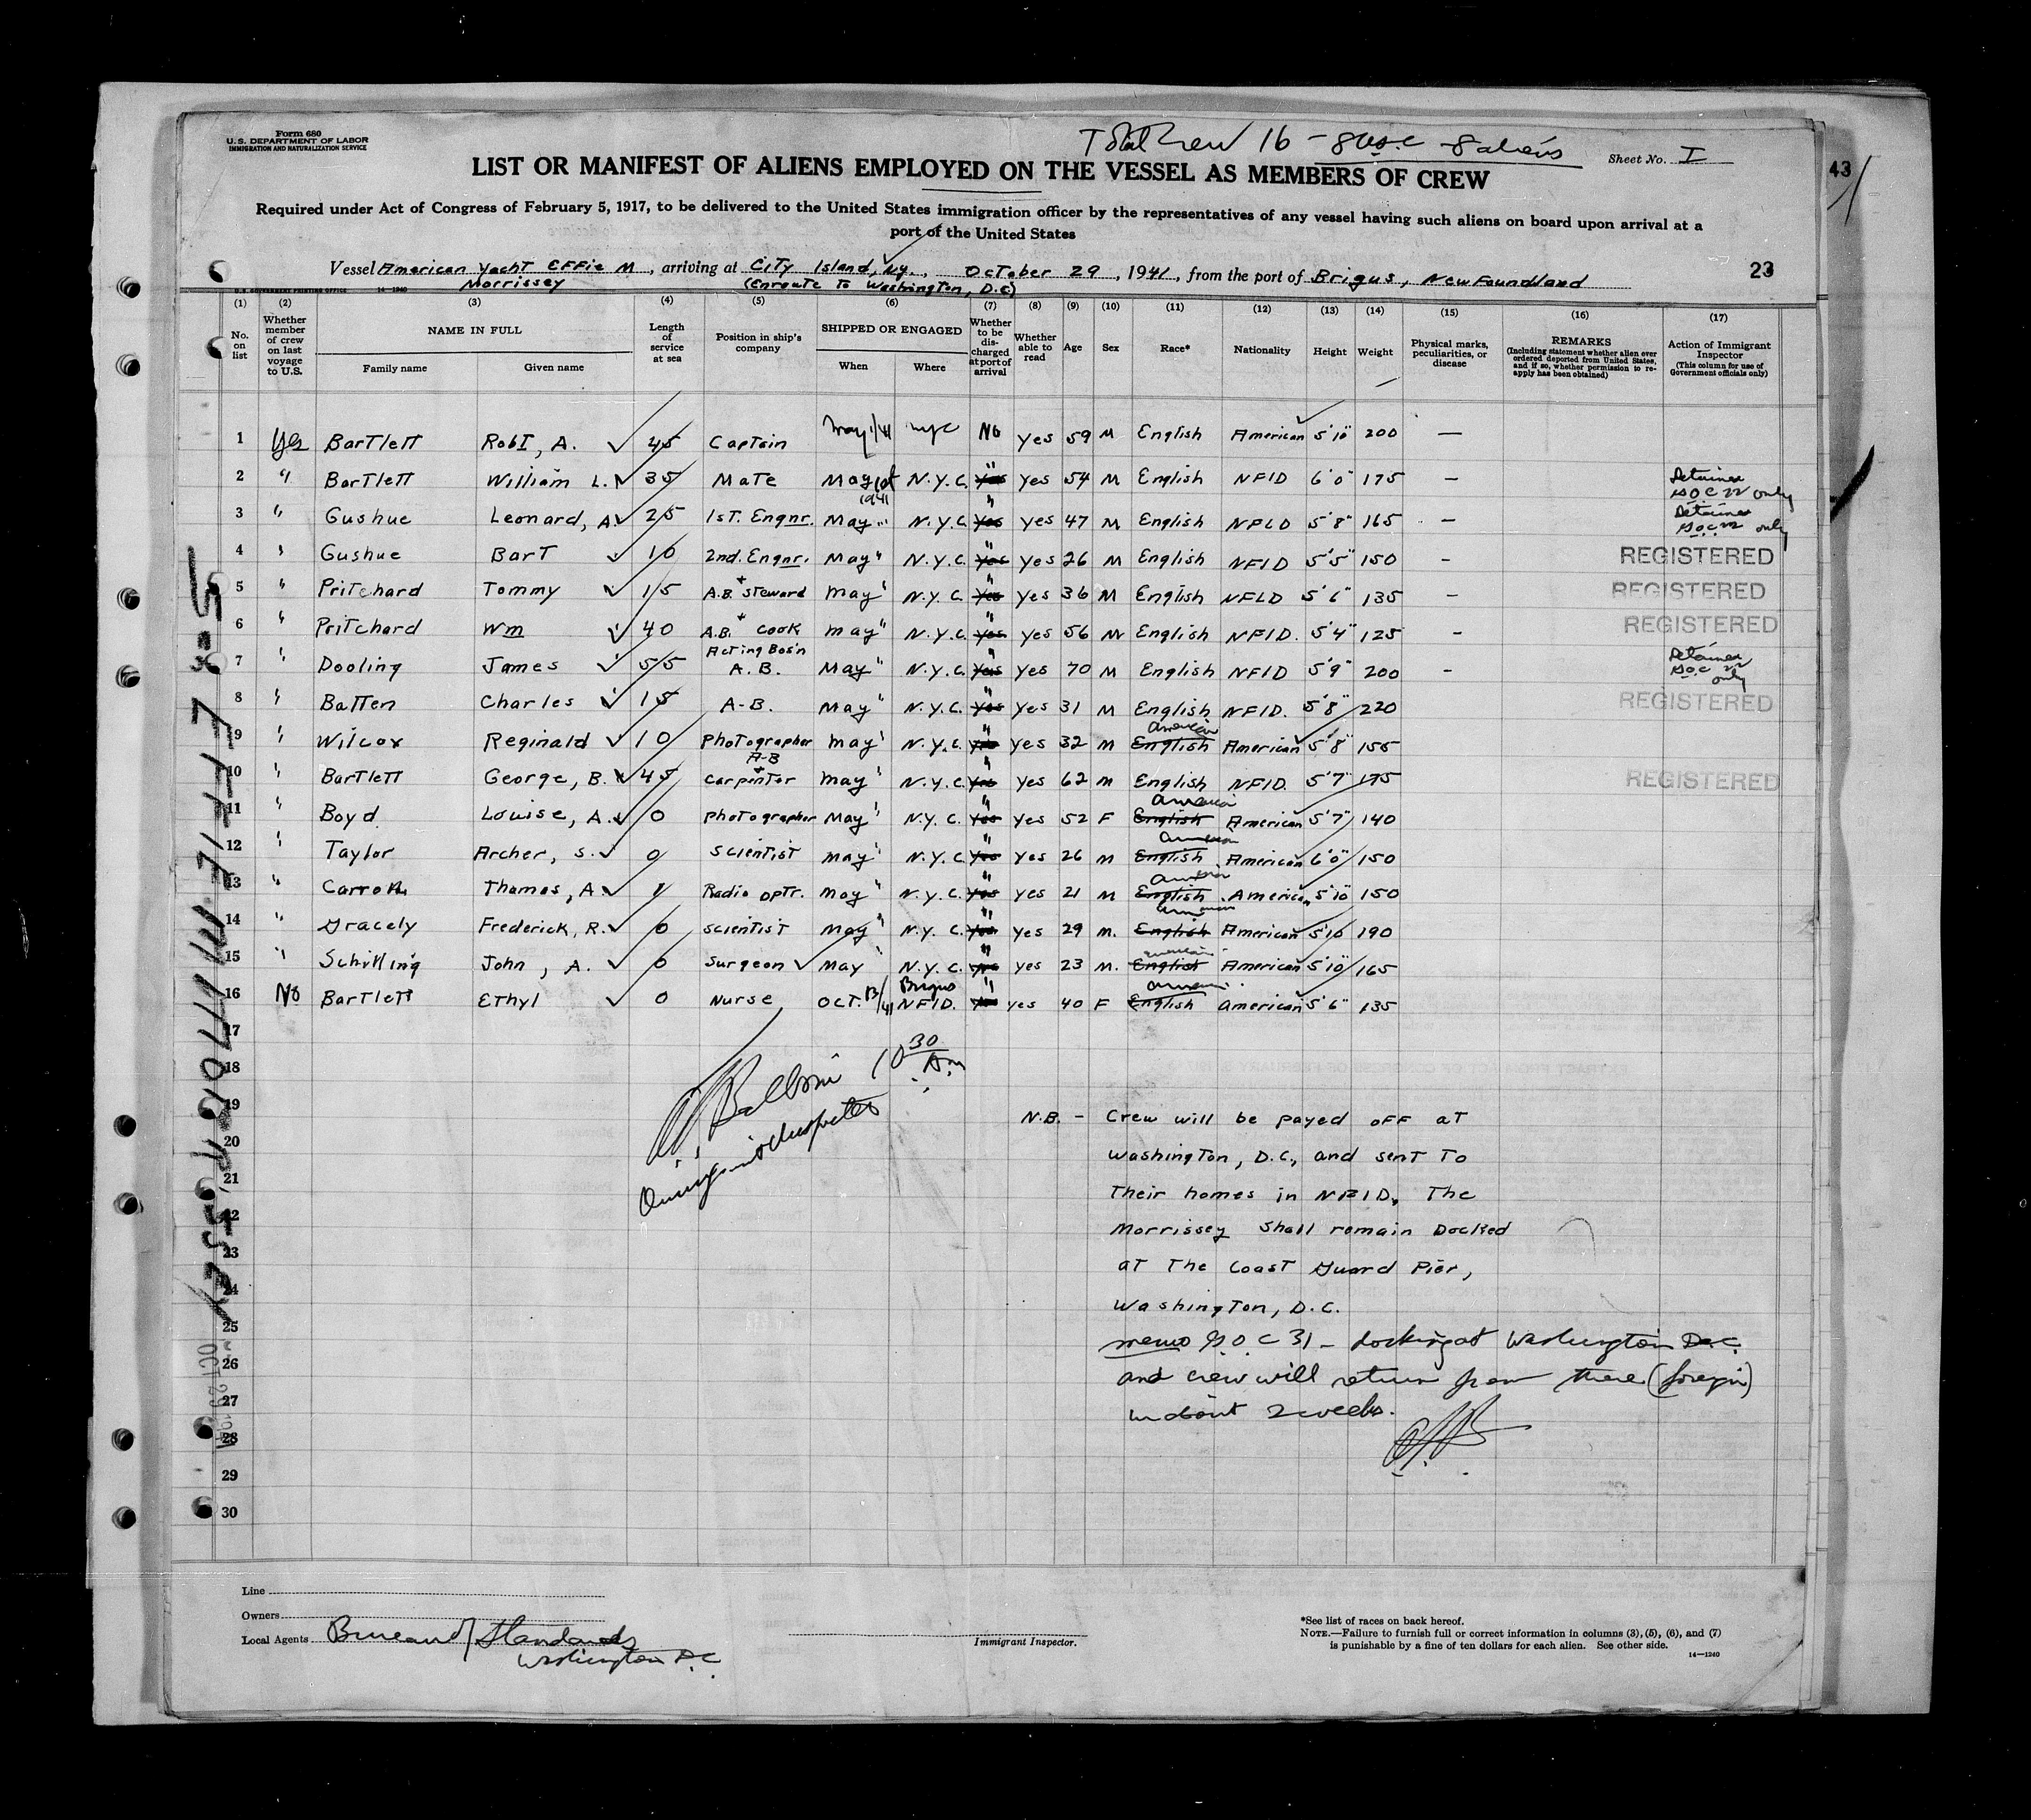 Form 680
U.S. DEPARTMENT OF LABOR
IMMIGRATION AND NATURALIZATION SERVICE
Total Crew 16 - 8 USC - 8 aliens
Sheet No. I
43
LIST OR MANIFEST OF ALIENS EMPLOYED ON THE VESSEL AS MEMBERS OF CREW
Required under Act of Congress of February 5, 1917, to be delivered to the United States immigration officer by the representatives of any vessel having such aliens on board upon arrival at a
port of the United States
Vessel American Yacht Effie M, arriving at City Island, N.Y., October 29, 1941, from the port of Brigus, Newfoundland
23
Morrissey (Enroute to Washington, D.C)
U.S. GOVERNMENT PRINTING OFFICE 14-1240
(1) (2) (3) (4) (5) (6) (7) (8) (9) (10) (11) (12) (13) (14) (15) (16) (17)
No. on list
Whether member of crew on last voyage to U.S.
NAME IN FULL
Family name
Given name
Length of service at sea
Position in ship's company
SHIPPED OR ENGAGED
When
Where
Whether to be discharged at port of arrival
Whether able to read
Age
Sex
Race*
Nationality
Height
Weight
Physical marks, peculiarities, or disease
REMARKS
(Including statement whether alien ever ordered deported from United States, and if so, whether permission to reapply has been obtained)
Action of Immigrant Inspector
(This column for use of Government officials only)
1 Yes Bartlett Robt, A. 45 Captain May 1/41 NYC No Yes 59 M English American 5'10" 200 —
2 " Bartlett William L. 35 Mate May 1st 1941 N.Y.C. Yes " Yes 54 M English NFLD 6'0" 175 — Detained only
3 " Gushue Leonard, A. 25 1st. Engnr. May " N.Y.C. Yes " Yes 47 M English NFLD 5'8" 165 — Detained only
4 " Gushue Bart 10 2nd. Engnr. May " N.Y.C. Yes " Yes 26 M English NFLD 5'5" 150 - REGISTERED
5 " Pritchard Tommy 15 A.B. + Steward May " N.Y.C. Yes " Yes 36 M English NFLD 5'6" 135 - REGISTERED
6 " Pritchard Wm 40 A.B. + Cook May " N.Y.C. Yes " Yes 56 M English NFLD. 5'4" 125 - REGISTERED
7 " Dooling James 55 Acting Bos'n A.B. May " N.Y.C. Yes " Yes 70 M English NFLD 5'9" 200 - Detained only
8 " Batten Charles 15 A-B. May " N.Y.C. Yes " Yes 31 M English NFLD. 5'8" 220 REGISTERED
9 " Wilcox Reginald 10 Photographer May " N.Y.C. Yes " Yes 32 M English American American 5'8" 155
10 " Bartlett George, B. 45 A-B + Carpenter May " N.Y.C. Yes " Yes 62 M English NFLD. 5'7" 175 REGISTERED
11 " Boyd Louise, A. 0 Photographer May " N.Y.C. Yes " Yes 52 F English American American 5'7" 140
12 " Taylor Archer, S. 0 Scientist May " N.Y.C. Yes " Yes 26 M English American American 6'0" 150
13 " Carroll Thomas, A. 1 Radio Optr. May " N.Y.C. Yes " Yes 21 M English American American 5'10" 150
14 " Gracely Frederick, R. 0 Scientist May " N.Y.C. Yes " Yes 29 M. English American American 5'10 190
15 " Schilling John, A. 0 Surgeon May " N.Y.C. Yes " Yes 23 M. English American American 5'10" 165
16 No Bartlett Ethyl 0 Nurse Oct. 13/41 Brigus NFLD. Yes " Yes 40 F English American American 5'6" 135
17
18
19
20
21
22
23
24
25
26
27
28
29
30
10 30 A.m
Immigrant Inspector
N.B. - Crew will be payed off at
Washington, D.C., and sent to
their homes in NFLD. The
Morrissey shall remain docked
at the Coast Guard Pier,
Washington, D.C.
memo G.O.C 31 - docking at Washington D.C.
and crew will return from there (foreign)
in about 2 weeks.
S-S EFFIE M MORRISSEY
OCT 29 1941
Line
Owners
Local Agents Bureau of Standards
Washington D.C.
Immigrant Inspector.
*See list of races on back hereof.
NOTE.—Failure to furnish full or correct information in columns (3), (5), (6), and (7)
is punishable by a fine of ten dollars for each alien. See other side.
14—1240